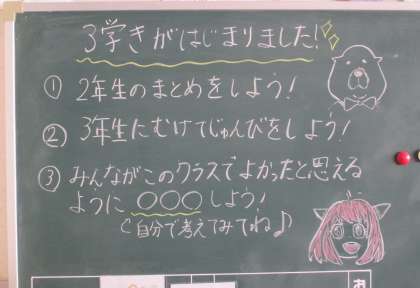 3学きがはじまりました!
① 2年生のまとめをしよう!
② 3年生にむけてじゅんびをしよう!
③ みんながこのクラスでよかったと思える
ように ○○○しよう!
自分で考えてみてね♪
お